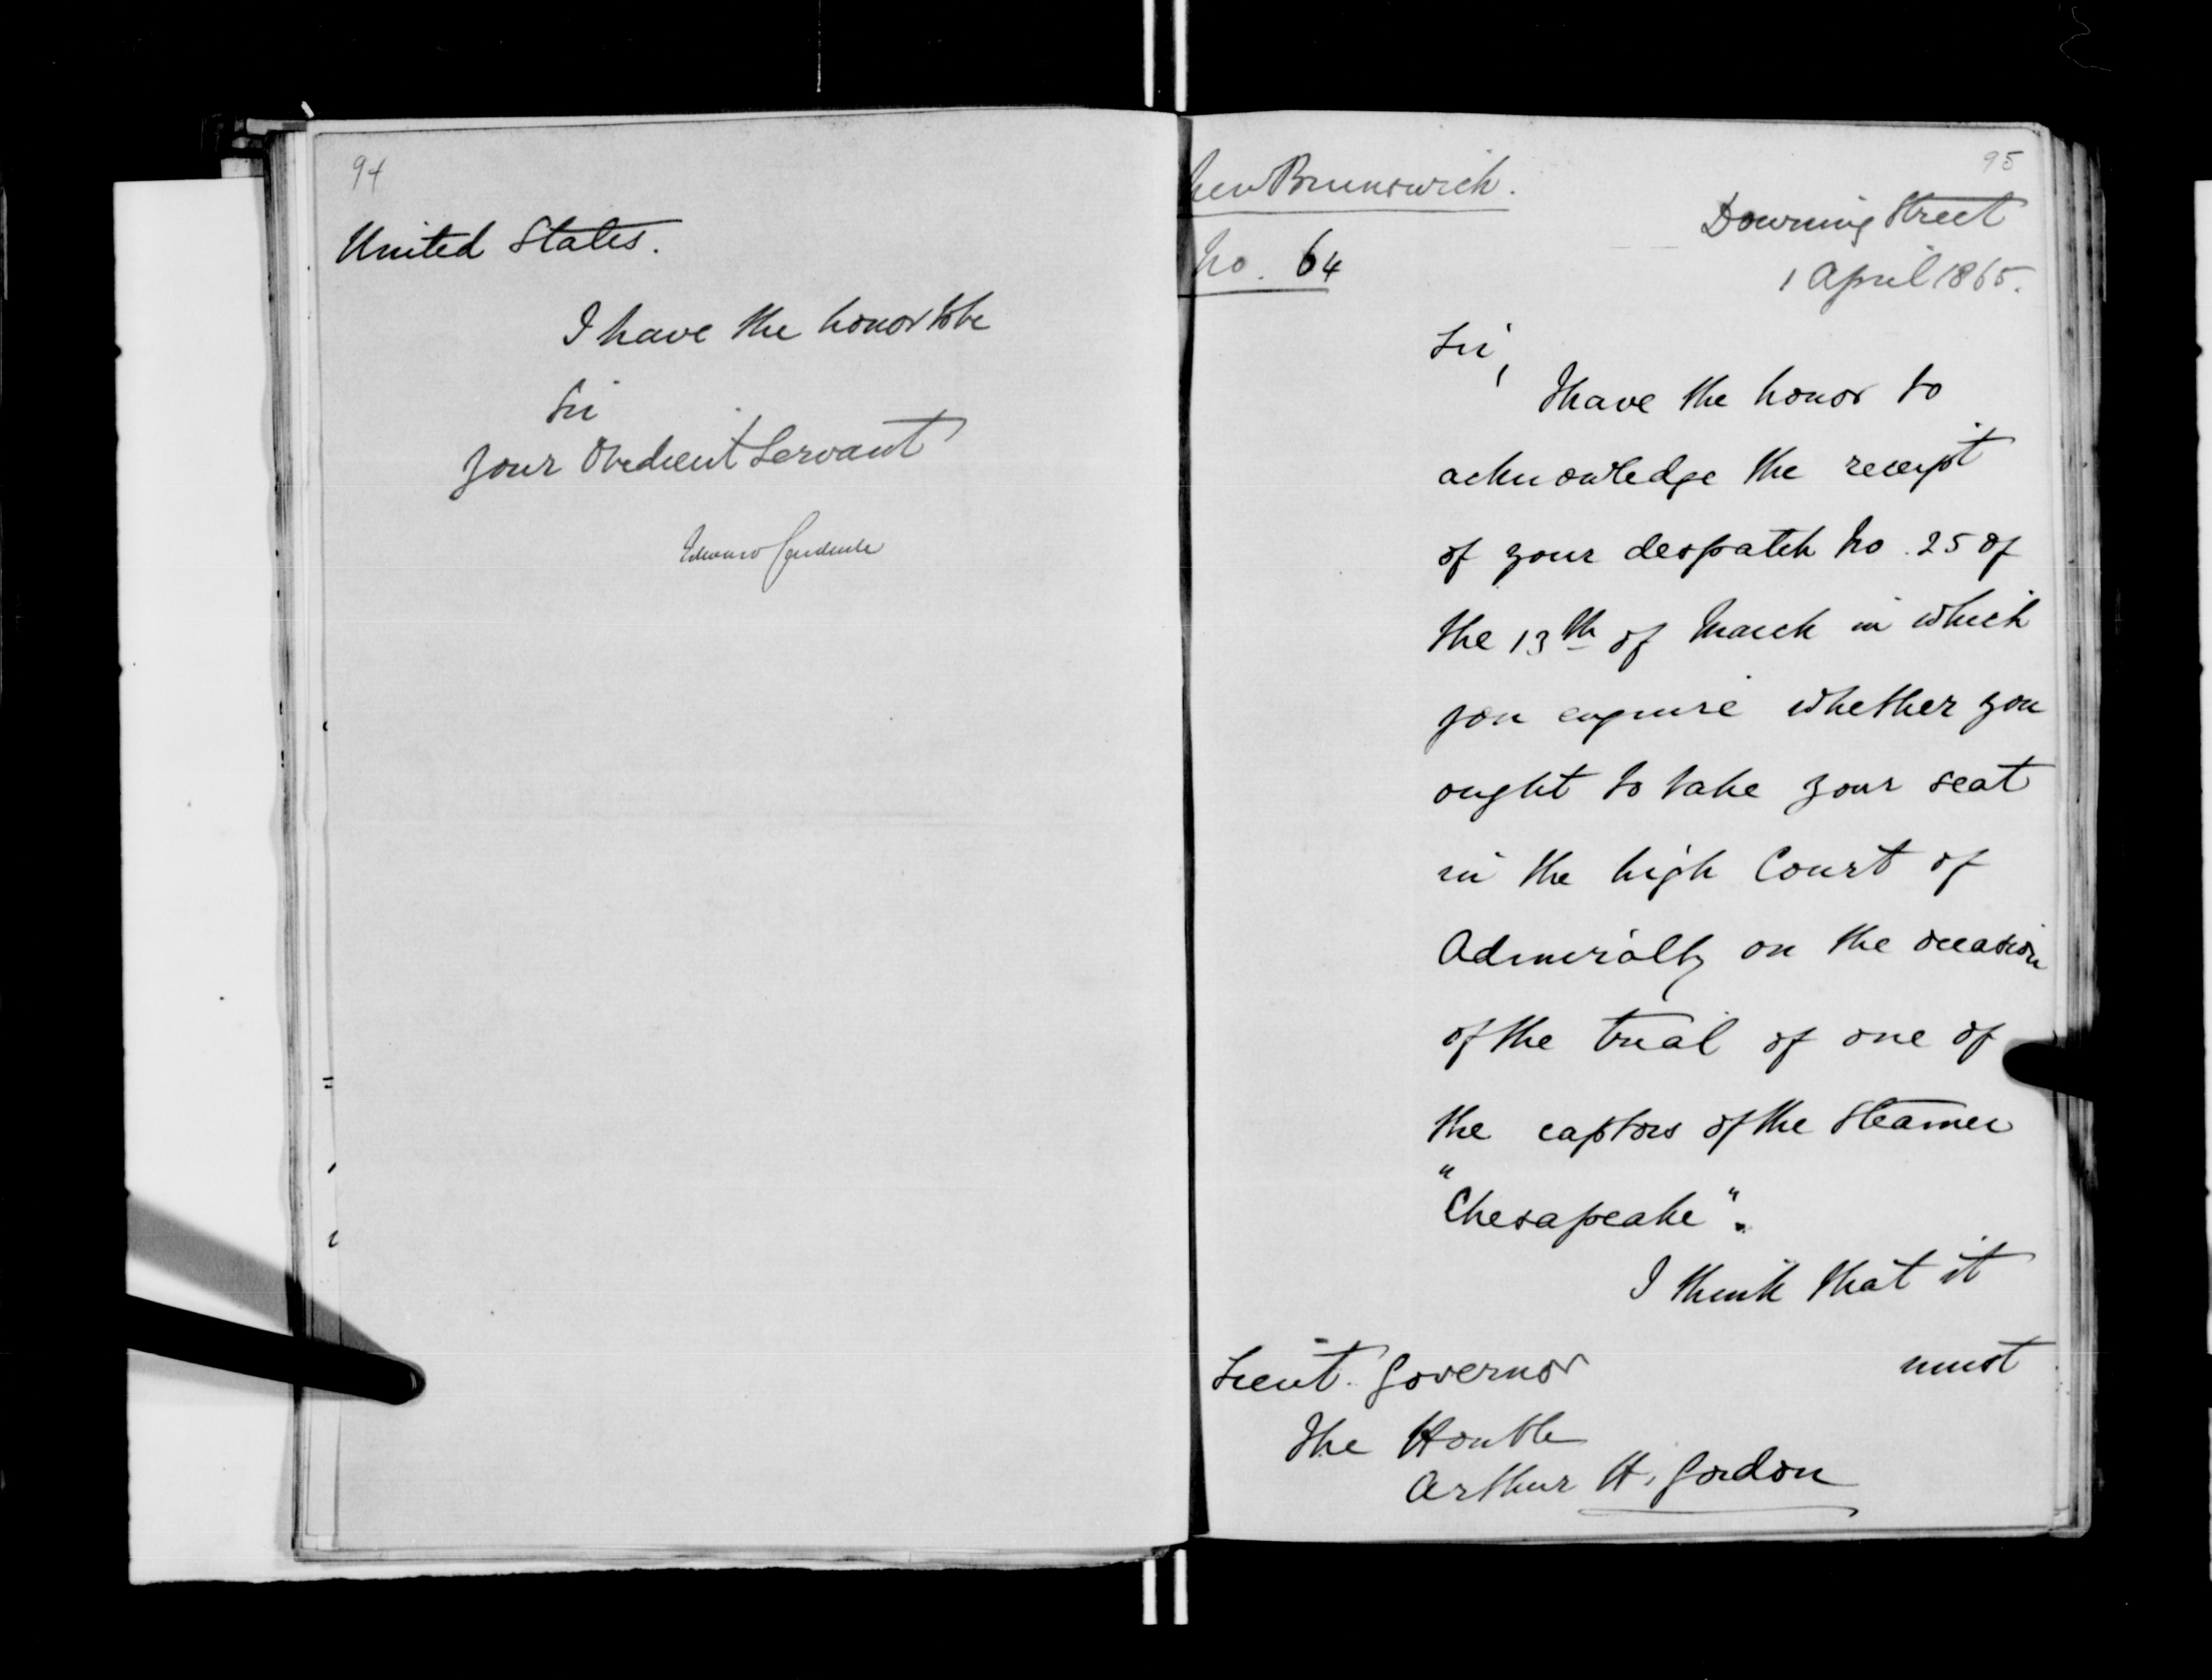 94
United States.
I have the honor to be
Sir
Your Obedient Servant
Edward Cardwell
95
New Brunswick.
No. 64
Downing Street
1 April 1865.
Sir,
I have the honor to
acknowledge the receipt
of your despatch No. 25 of
the 13th of March in which
you enquire whether you
ought to take your seat
in the high Court of
Admiralty on the occasion
of the trial of one of
the captors of the Steamer
"Chesapeake".
I think that it
must
Lieut. Governor
The Honble
Arthur H. Gordon